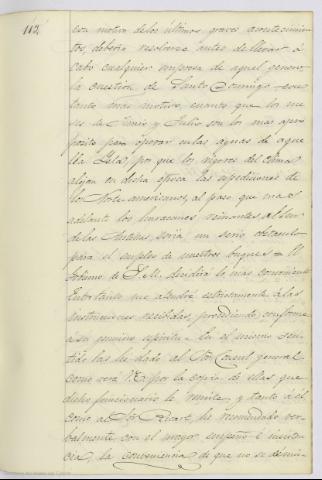 112
con motivo de los últimos graves acontecimien-
tos, debería resolverse antes de llevar á
cabo cualquier empresa de aquel genero
la cuestion de Santo Domingo con
tanto mas motivo, cuanto que los me
ses de Junio y Julio son los mas apro
posito para operar en las aguas de aque
lla Isla, por que los rigores del clima
alejan en dicha época las espediciones de
los Norte americanos, al paso que mas
adelante los huracanes reinantes al Sur
de las Antillas, seria un serio obstaculo
para el empleo de nuestros buques = El
Gobierno de S. M. decidirá lo mas conveniente
Entre tanto me atendré estrictamente á las
instrucciones recibidas, procediendo conforme
a su mismo espiritu. En el mismo sen-
tido las he dado al Sor Consul general
como verá V.E. por la copia de ellas que
dicho funcionario le remite, y tanto á el
como al Sor Ricart, he recomendado ver-
balmente con el mayor empeño é insisten
cia, la conveniencia de que no se dismi-